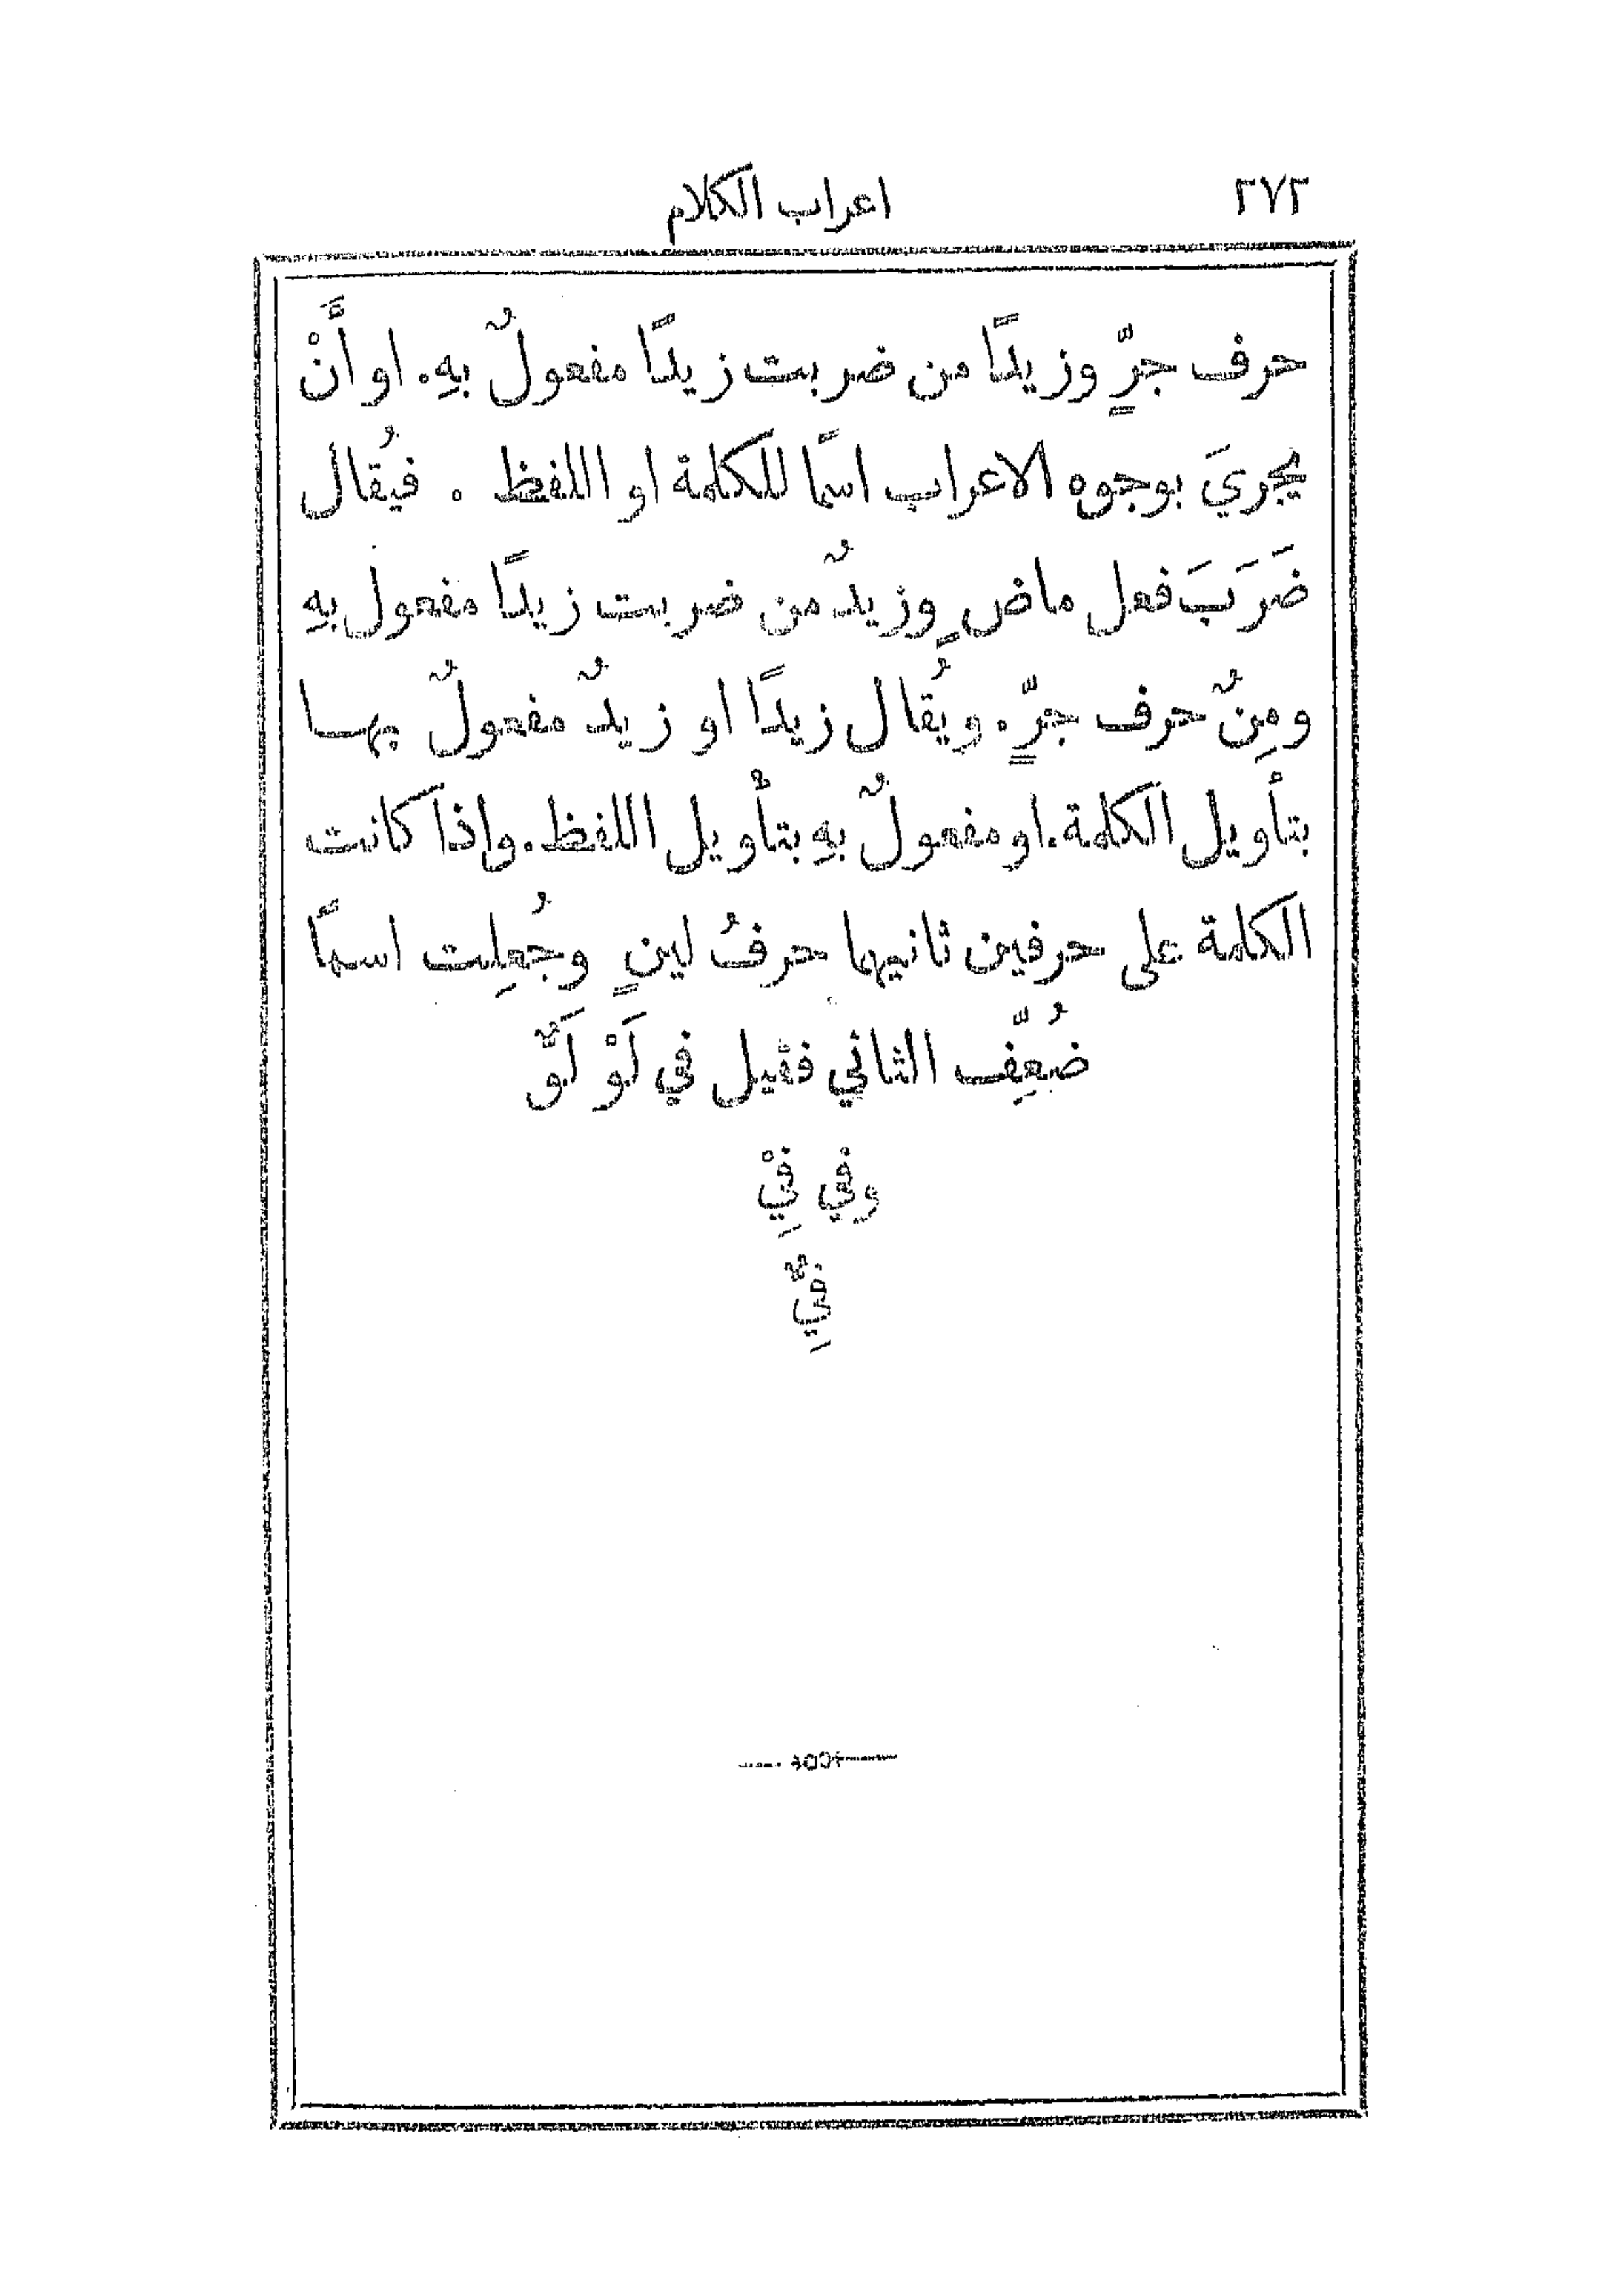 ٢٧٢ اعراب الكلام
حرف جرٍّ وزيدًا من ضربت زيدًا مفعولٌ بهِ. او أَنْ
يجريَ بوجوه الاعراب اسمًا للكلمة او اللفظ . فيُقال
ضَرَبَ فعل ماضٍ وزيدٌ من ضربت زيدًا مفعول بهِ
ومِنٌ حرف جرٍّ. ويُقال زيدًا او زيدٌ مفعولٌ بها
بتأويل الكلمة. او مفعولٌ بهِ بتأْويل اللفظ. واذا كانت
الكلمة على حرفين ثانيهما حرفُ لينٍ وجُعِلت اسمًا
ضُعِّف الثاني فقيل في لَوْ لَوٌّ
وفي فِيْ
فِيٌّ